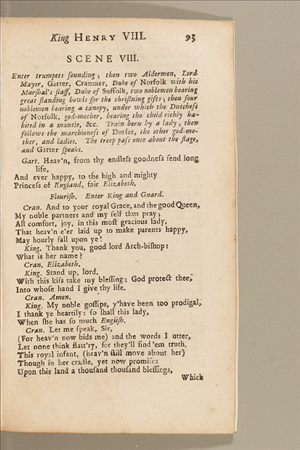 King HENRY VIII. 95
SCENE VIII.
Enter trumpets sounding; then two Aldermen, Lord
Mayor, Garter, Cranmer, Duke of Norfolk with his
Marshal's staff, Duke of Suffolk, two noblemen bearing
great standing bowls for the christning gifts; then four
noblemen bearing a canopy, under which the Dutchess
of Norfolk, god-mother, bearing the child richly ha-
bited in a mantle, &c. Train born by a lady; then
follows the marchioness of Dorset, the other god-mo-
ther, and ladies. The troop pass once about the stage,
and Garter speaks.
Gart. Heav'n, from thy endless goodness send long
life,
And ever happy, to the high and mighty
Princess of England, fair Elizabeth.
Flourish. Enter King and Guard.
Cran. And to your royal Grace, and the good Queen,
My noble partners and my self thus pray;
All comfort, joy, in this most gracious lady,
That heav'n e'er laid up to make parents happy,
May hourly fall upon ye!
King. Thank you, good lord Arch-bishop:
What is her name?
Cran. Elizabeth.
King. Stand up, lord.
With this kiss take my blessing: God protect thee,
Into whose hand I give thy life.
Cran. Amen.
King. My noble gossips, y'have been too prodigal,
I thank ye heartily: so shall this lady,
When she has so much English.
Cran. Let me speak, Sir,
(For heav'n now bids me) and the words I utter,
Let none think flatt'ry, for they'll find 'em truth.
This royal infant, (heav'n still move about her)
Though in her cradle, yet now promises
Upon this land a thousand thousand blessings,
Which